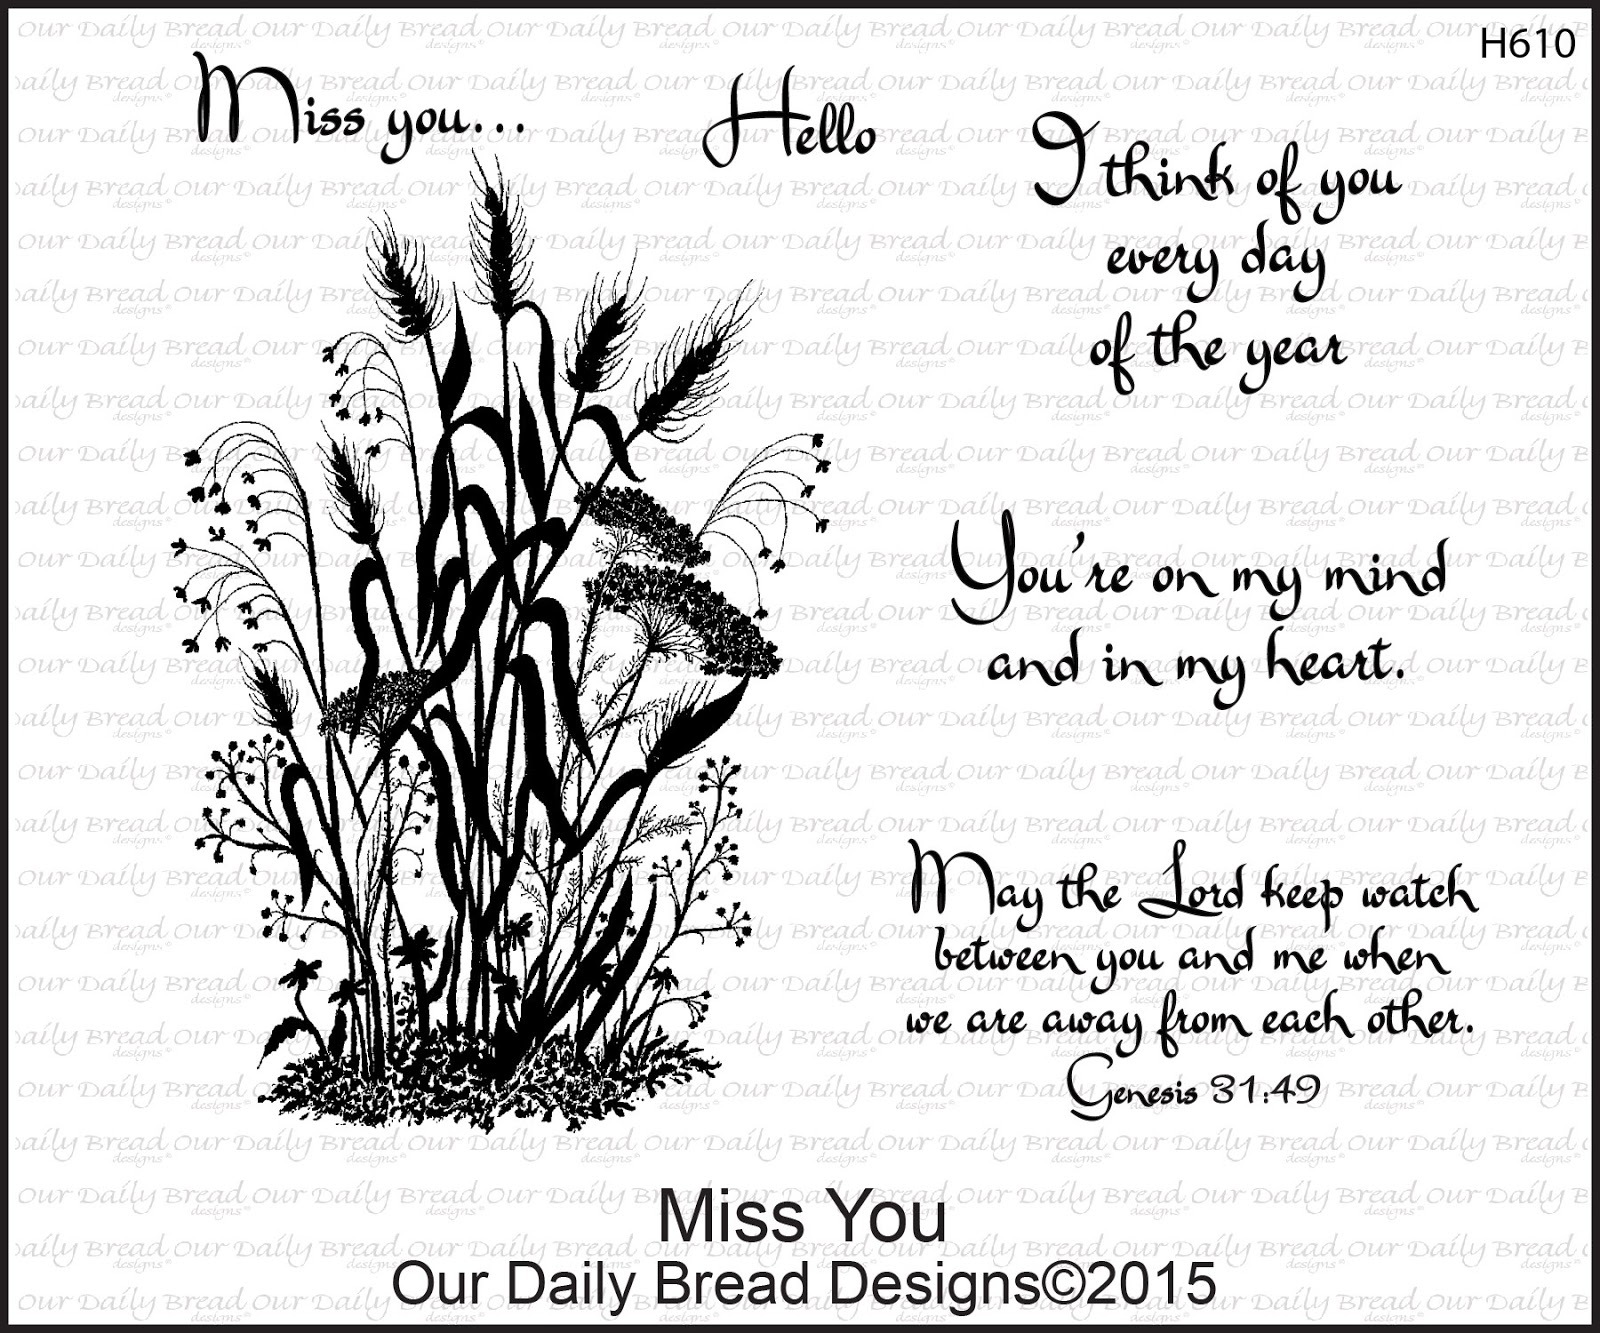 H610
Miss you...
Hello
I think of you
every day
of the year
You're on my mind
and in my heart.
May the Lord keep watch
between you and me when
we are away from each other.
Genesis 31:49
Miss You
Our Daily Bread Designs©2015
Our Daily Bread
designs©